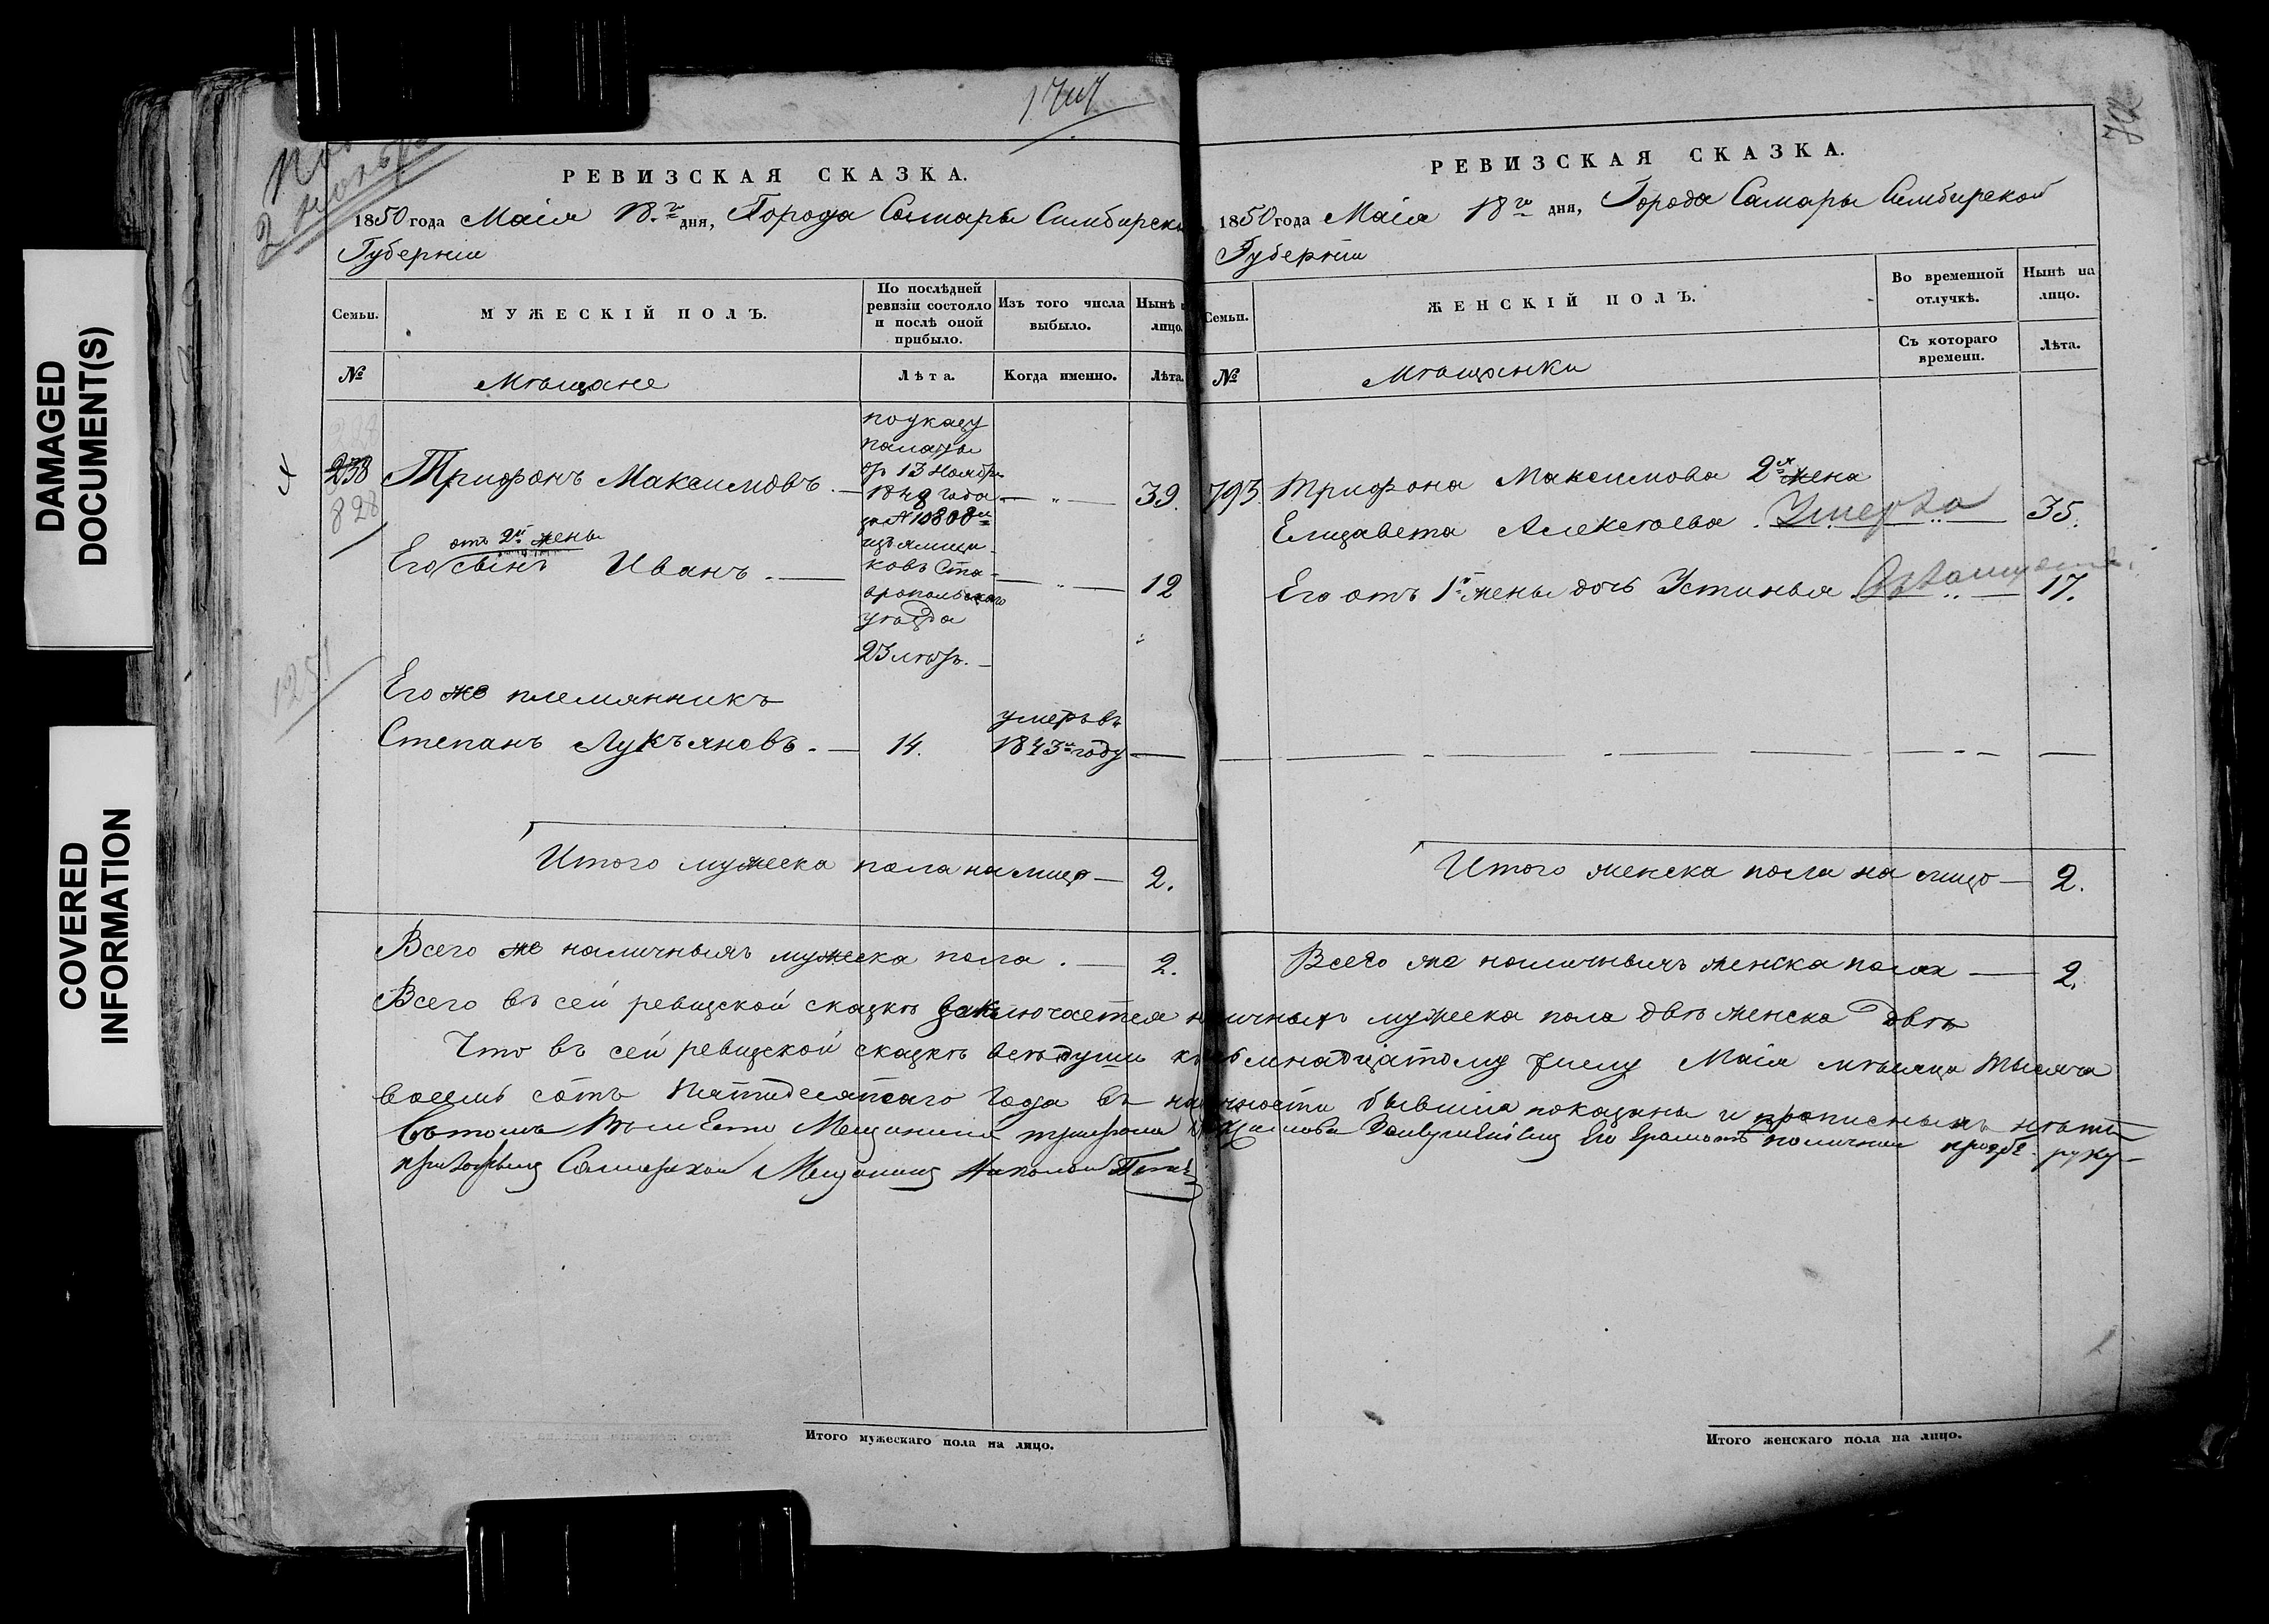 DAMAGED
DOCUMENT(S)
COVERED
INFORMATION
РЕВИЗСКАЯ СКАЗКА.
1850 года Маія 18.го дня, Города Самары Симбирской
Губерніи
Семьи.
МУЖЕСКІЙ ПОЛЪ.
По послѣдней
ревизіи состояло
и послѣ оной
прибыло.
Изъ того числа
выбыло.
Нынѣ
лицо.
№
Мѣщане
Лѣта.
Когда именно.
Лѣта.
238
828
Трифонъ Максимовъ. — 39.
по указу
палаты
отъ 13 Ноября
1848 года
за № 10808м
изъ ямщи-
ковъ Ста-
вропольскаго
уѣзда
23 лѣтъ.
отъ 2й жены
Его сынъ Иванъ. — 12
Его же племянникъ
умеръ въ
Степанъ Лукъяновъ. — 14. 1843м году —
Итого мужеска пола на лицо — 2.
Всего же наличныхъ мужеска пола. — 2.
РЕВИЗСКАЯ СКАЗКА.
1850 года Маія 18го дня, Города Самары Симбирской
Губерніи
Семьи.
ЖЕНСКІЙ ПОЛЪ.
Во временной
отлучкѣ.
Нынѣ на
лицо.
Съ котораго
времени.
Лѣта.
№
Мѣщанки
793. Трифона Максимова 2я жена
Елизавета Алексѣева. Умерла 35.
Его отъ 1й жены дочь Устинья 17.
Итого женска пола на лицо — 2.
Всего же наличныхъ женска пола — 2.
Всего въ сей ревизской сказкѣ заключается наличныхъ мужеска пола двѣ женска двѣ
Что въ сей ревизской сказкѣ всѣ души къ осьмнадцатому числу Маія мѣсяца тысяча
восемь сотъ пятидесятаго года въ наличности бывшія показаны и прописныхъ нѣтъ
въ томъ вместо Мещанина Трифона Максимова
Самарской Мещанинъ Николай
Итого мужескаго пола на лицо.
Итого женскаго пола на лицо.